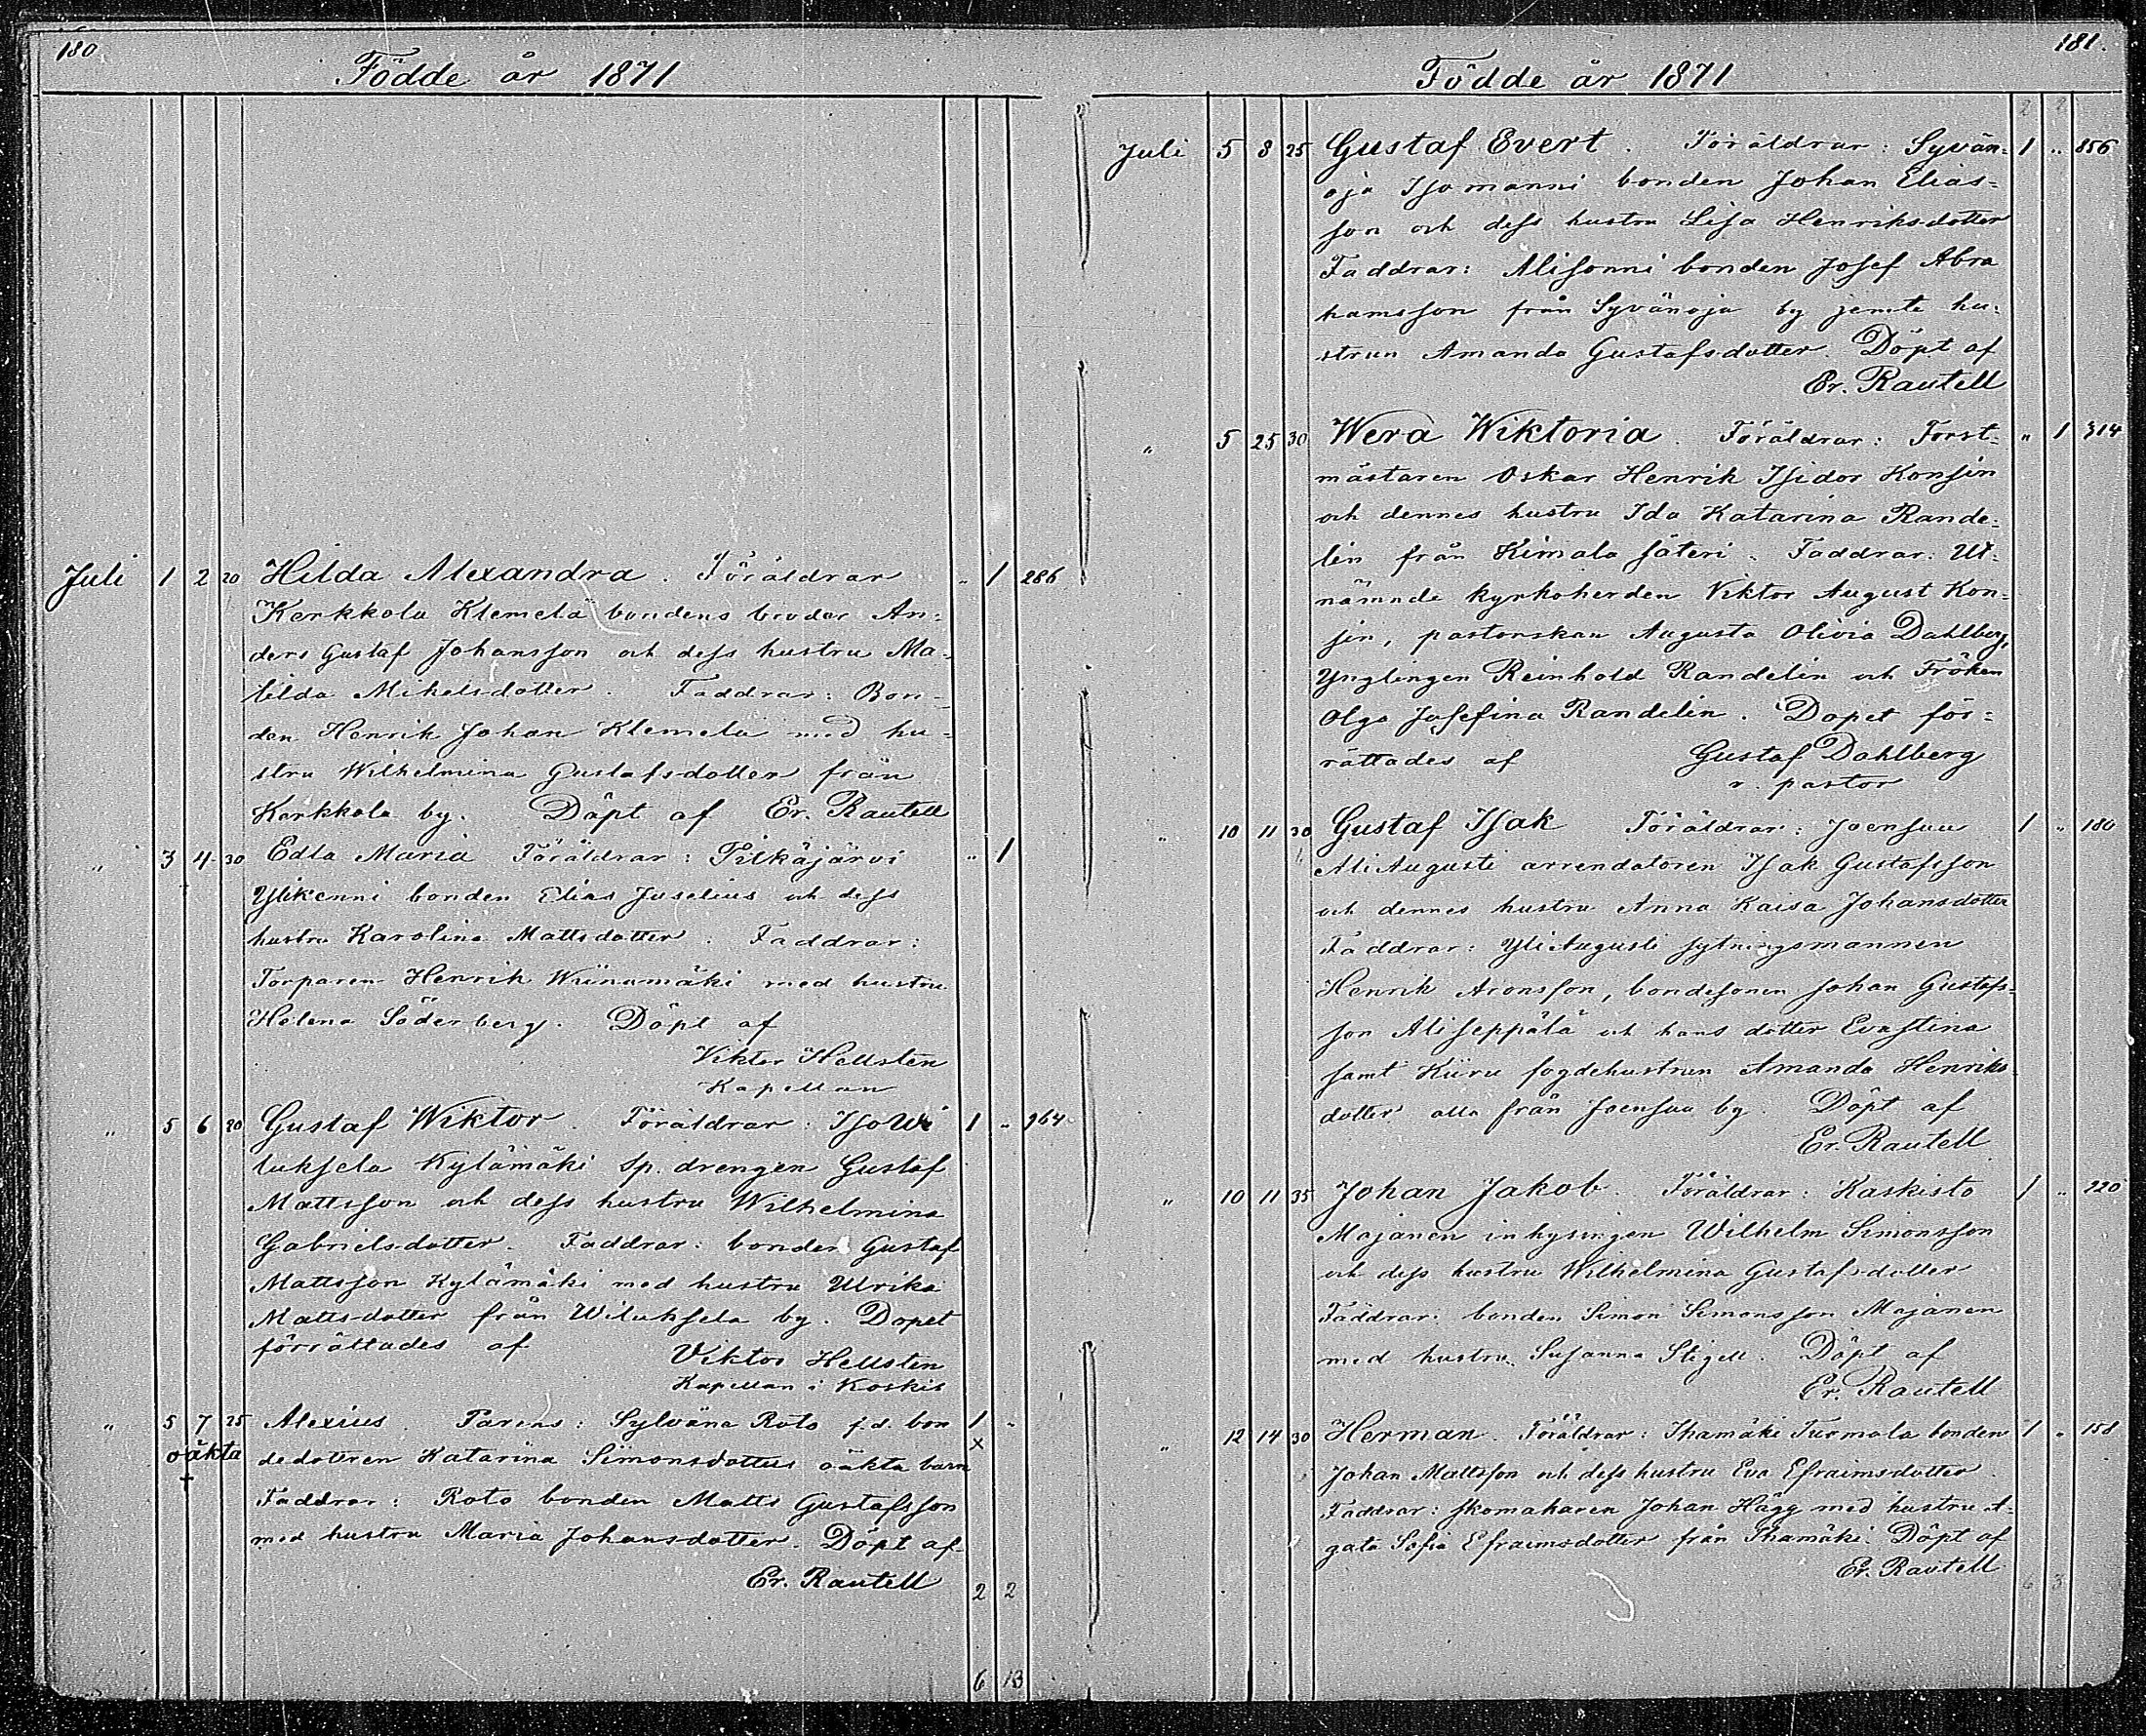 180
Födde år 1871
Juli 1 2 20 Hilda Alexandra. Föräldrar " 1 286
Kerkkola Klemelä bondens broder An-
ders Gustaf Johansson och dess hustru Ma-
tilda Mikelsdotter. Faddrar: Bon-
den Henrik Johan Klemela med hu-
stru Wilhelmina Gustafsdotter från
Kerkkola by. Döpt af Er. Rautell
" 3 4 30 Edla Maria Föräldrar: Pitkäjärvi " 1
Ylikenni bonden Elias Juselius och dess
hustru Karolina Mattsdotter. Faddrar:
Torparen Henrik Wiinamäki med hustru
Helena Söderberg. Döpt af
Viktor Hellsten
Kapellan
" 5 6 20 Gustaf Wiktor. Föräldrar: Iso Wi 1 " 964
luksela Kylämäki Sp. drengen Gustaf
Mattsson och dess hustru Wilhelmina
Gabrielsdotter. Faddrar: bonden Gustaf
Mattsson Kylämäki med hustru Ulrika
Mattsdotter från Wiluksela by. Dopet
förrättades af Viktor Hellsten
Kapellan i Koskis
" 5 7 25 Alexius. Parens: Sylväna Roto f.d. bon 1 "
oäkta dedotteren Katarina Simonsdotters oäkta barn x
Faddrar: Roto bonden Matts Gustafsson
med hustru Maria Johansdotter. Döpt af
Er. Rautell
2 2
6 13
181.
Födde år 1871
2 2
Juli 5 8 25 Gustaf Evert. Föräldrar: Syvän- 1 " 856
oja Isomanni bonden Johan Elias-
son och dess hustru Lisa Henriksdotter
Faddrar: Alisonni bonden Josef Abra
hamsson från Syvänoja by jemte hu-
strun Amanda Gustafsdotter. Döpt af
Er. Rautell
" 5 25 30 Wera Wiktoria. Föräldrar: Forst- " 1 314
mästaren Oskar Henrik Isidor Konsin
och dennes hustru Ida Katarina Rande-
lin från Kimala säteri. Faddrar: Ut-
nämnde kyrkoherden Viktor August Kon-
sin, pastorskan Augusta Olivia Dahlberg,
Ynglingen Reinhold Randelin och Fröken
Olga Josefina Randelin. Dopet för-
rättades af Gustaf Dahlberg
v. pastor
" 10 11 30 Gustaf Isak Föräldrar: Joensuu 1 " 180
AliAugusti arrendatoren Isak Gustafsson
och dennes hustru Anna Kaisa Johansdotter
Faddrar: YliAugusti sytningsmannen
Henrik Aronsson, bondesonen Johan Gustafs-
son Aliseppälä och hans dotter Evastina
samt Kiiru fogdehustrun Amanda Henriks-
dotter alla från Joensuu by. Döpt af
Er. Rautell
" 10 11 35 Johan Jakob. Föräldrar: Kaskisto 1 " 220
Majanen inhysingen Wilhelm Simonsson
och dess hustru Wilhelmina Gustafsdotter
Faddrar: bonden Simon Simonsson Majanen
med hustru Susanna Stigell. Döpt af
Er. Rautell
" 12 14 30 Herman. Föräldrar: Ihamäki Turmola bonden 1 " 158
Johan Mattsson och dess hustru Eva Efraimsdotter.
Faddrar: skomakaren Johan Hägg med hustru A-
gata Sofia Efraimsdotter från Ihamäki. Döpt af
Er. Rautell
6 3